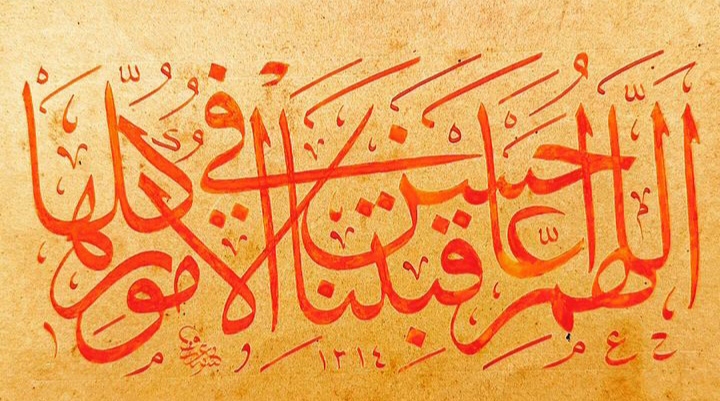 اللهم احسن عاقبتنا في الامور كلها
١٢١٤